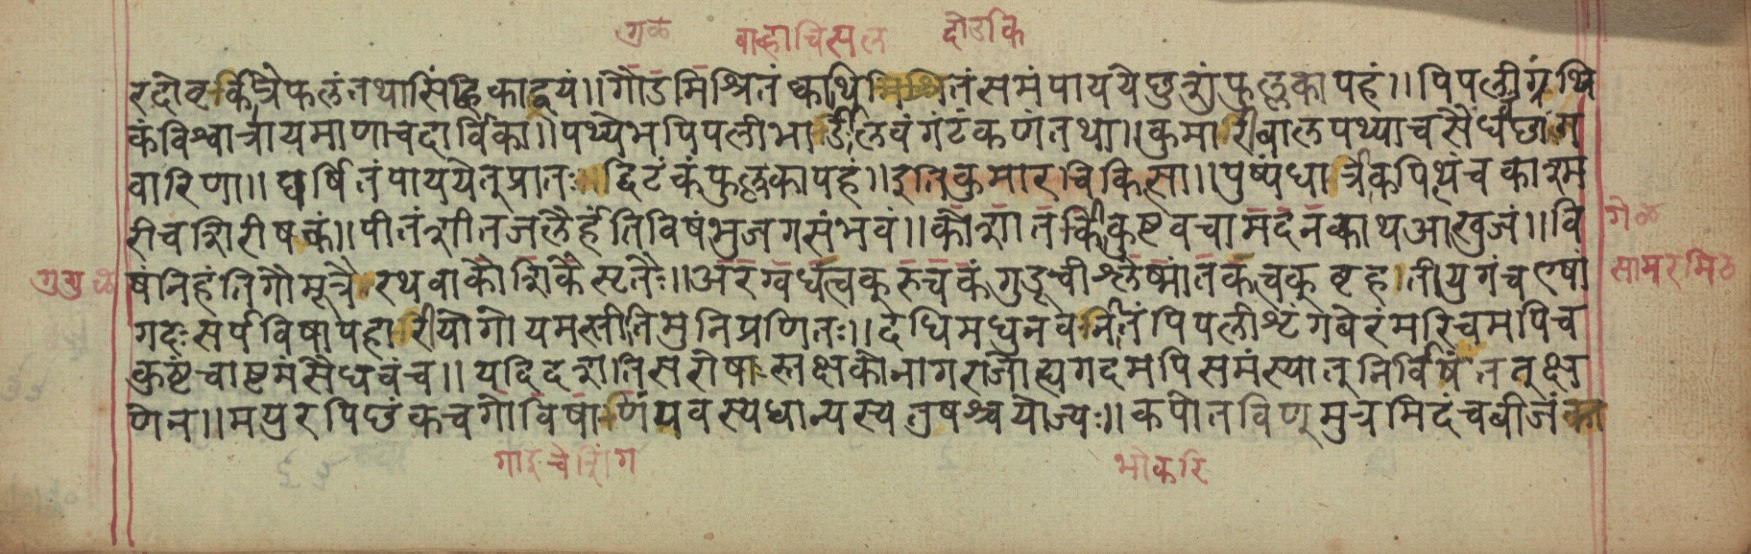 गुळ वाळाचित्पल दोडकि
रदोवर्कित्रैफलंतथासिंहिकाद्वयं॥गौडमिश्रितंक्वाथमिश्रितंसमंपाययेछुत्र्यांफुल्लकापहं॥पिपलीग्रंथि
कंविश्वात्रायमाणाचदार्विका॥पथ्येभपिपलीभार्ङीलवंगंटंकणंतथा॥कुमारीबालपथ्याचसैंधंछाग
वारिणा॥घर्षितंपाययेतुप्रातःद्विटंकंफुल्लकापहं॥इतिकुमारचिकित्सा॥पुष्पंधात्रीकपिथंचकारम
रीचशिरीषकं॥पीतंशीतजलैर्हंतिविषंभुजगसंभवं॥कोशातकीकुष्टवचामदनक्वाथआखुजं॥वि
गेळ
गुगुळे षंनिहंतिगोमूत्रैरथवाकौशिकैस्टतैः॥अरग्वधत्वकुरुचकंगुडूचीश्लेष्मांतकत्वकुष्टहतीयुगंचएषा सामरमिठ
गदःसर्पविषापहारीयोगोयमस्तीतिमुनिप्रणितः॥दधिमधुनवनीतंपिपलीश्टंगबेरंमरिचमपिच
कुष्टंचाष्टमंसैधवंच॥यदिदशतिसरोषास्तक्षकोनागराजोह्यगदमपिसमंस्यातुनिर्विषंततक्ष
णेन॥मयुरपिछंकचगोविषाणंयवस्यधान्यस्यतुषश्चयोज्यः॥कपोतविण्मुत्रमिदंचबीजंका
गाइचेशिंग भोकरि